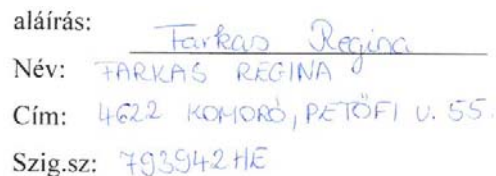 aláírás: Farkas Regina
Név: FARKAS REGINA
Cím: 4622 KOMORÓ, PETŐFI U. 55.
Szig.sz: 793942HE